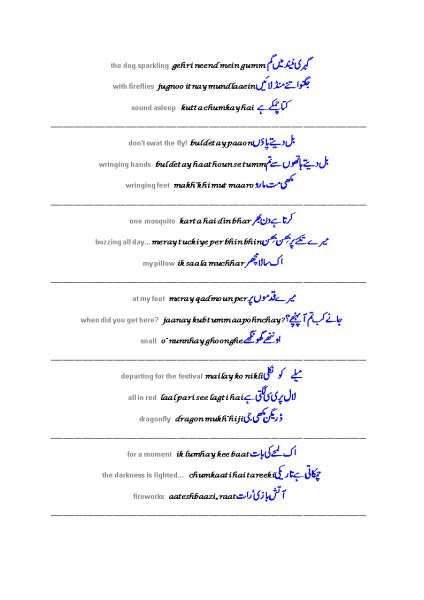 the dog sparkling gehri neend mein gumm گہری نیند میں گم
with fireflies jugnoo itnay mundlaaein جگنو اتنے منڈلائیں
sound asleep kutta chumkay hai کتا چمکے ہے
don't swat the fly! bul detay paaon بل دیتے پاؤں
wringing hands bul detay haathoun se tumm بل دیتے ہاتھوں سے تم
wringing feet makh'khi mut maaro مکھی مت مارو
one mosquito karta hai din bhar کرتا ہے دن بھر
buzzing all day... meray tuckiye per bhin bhin میرے تکیے پر بھن بھن
my pillow ik saala muchhar اک سالا مچھر
at my feet meray qadmoun per میرے قدموں پر
when did you get here? jaanay kub tumm aa pohnchay? جانے کب تم آ پہنچے؟
snail o' nunnhay ghoonghe او ننھے گھونگھے
departing for the festival mailay ko nikli میلے کو نکلی
all in red laal pari see lagti hai لال پری سی لگتی ہے
dragonfly dragon mukh'hi ji ڈریگن مکھی جی
for a moment ik lumhay kee baat اک لمحے کی بات
the darkness is lighted... chumkaati hai tareeki چمکاتی ہے تاریکی
fireworks aateshbaazi, raat آتش بازی' رات